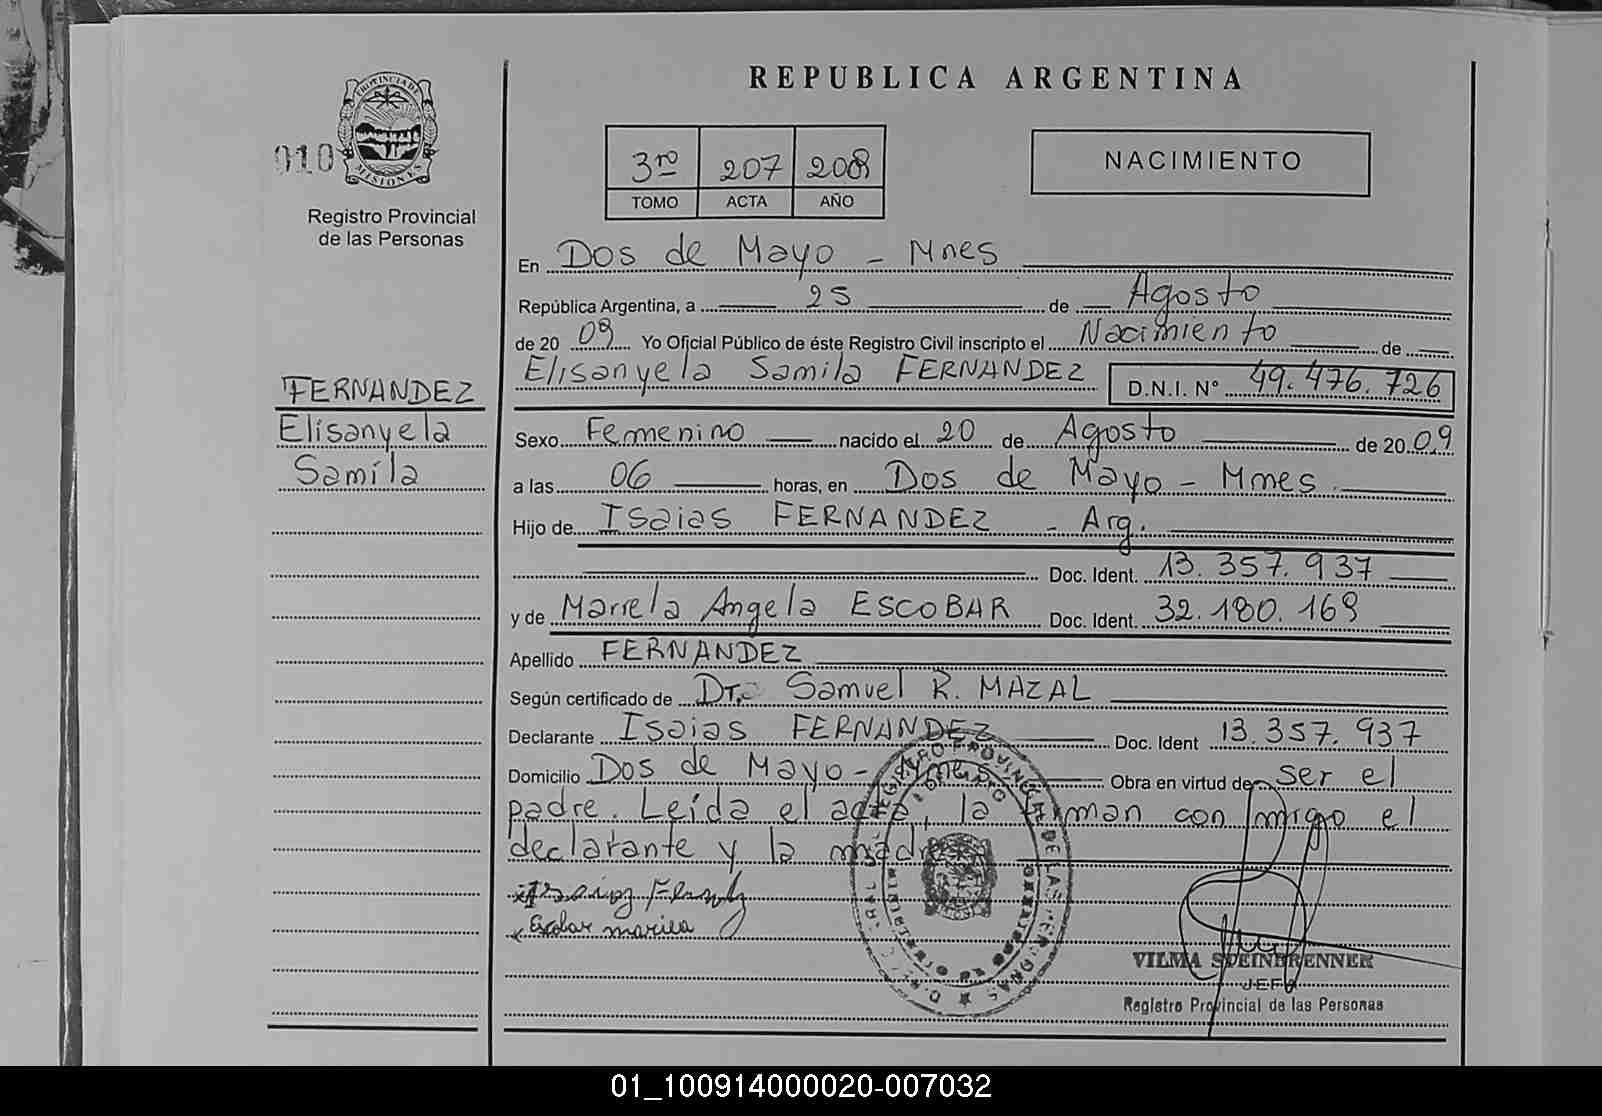 REPUBLICA ARGENTINA
PROVINCIA DE
MISIONES
010
Registro Provincial
de las Personas
3ro 207 2009
TOMO ACTA AÑO
NACIMIENTO
En Dos de Mayo - Mnes
República Argentina, a 25 de Agosto
de 20 09 Yo Oficial Público de éste Registro Civil inscripto el Nacimiento de
Elisanyela Samila FERNANDEZ D.N.I. Nº 49.476.726
FERNANDEZ
Elisanyela
Samila
Sexo Femenino nacido el 20 de Agosto de 20 09
a las 06 horas, en Dos de Mayo - Mnes
Hijo de Isaias FERNANDEZ - Arg.
Doc. Ident. 13.357.937
y de Mariela Angela ESCOBAR Doc. Ident. 32.180.169
Apellido FERNANDEZ
Según certificado de Dr. Samuel R. MAZAL
Declarante Isaias FERNANDEZ Doc. Ident 13.357.937
Domicilio Dos de Mayo - Mnes Obra en virtud de ser el
padre. Leída el acta, la firman conmigo el
declarante y la madre
Escobar mariela
VILMA STEINBRENNER
JEFA
Registro Provincial de las Personas
REGISTRO PROVINCIAL DE LAS PERSONAS
01_100914000020-007032